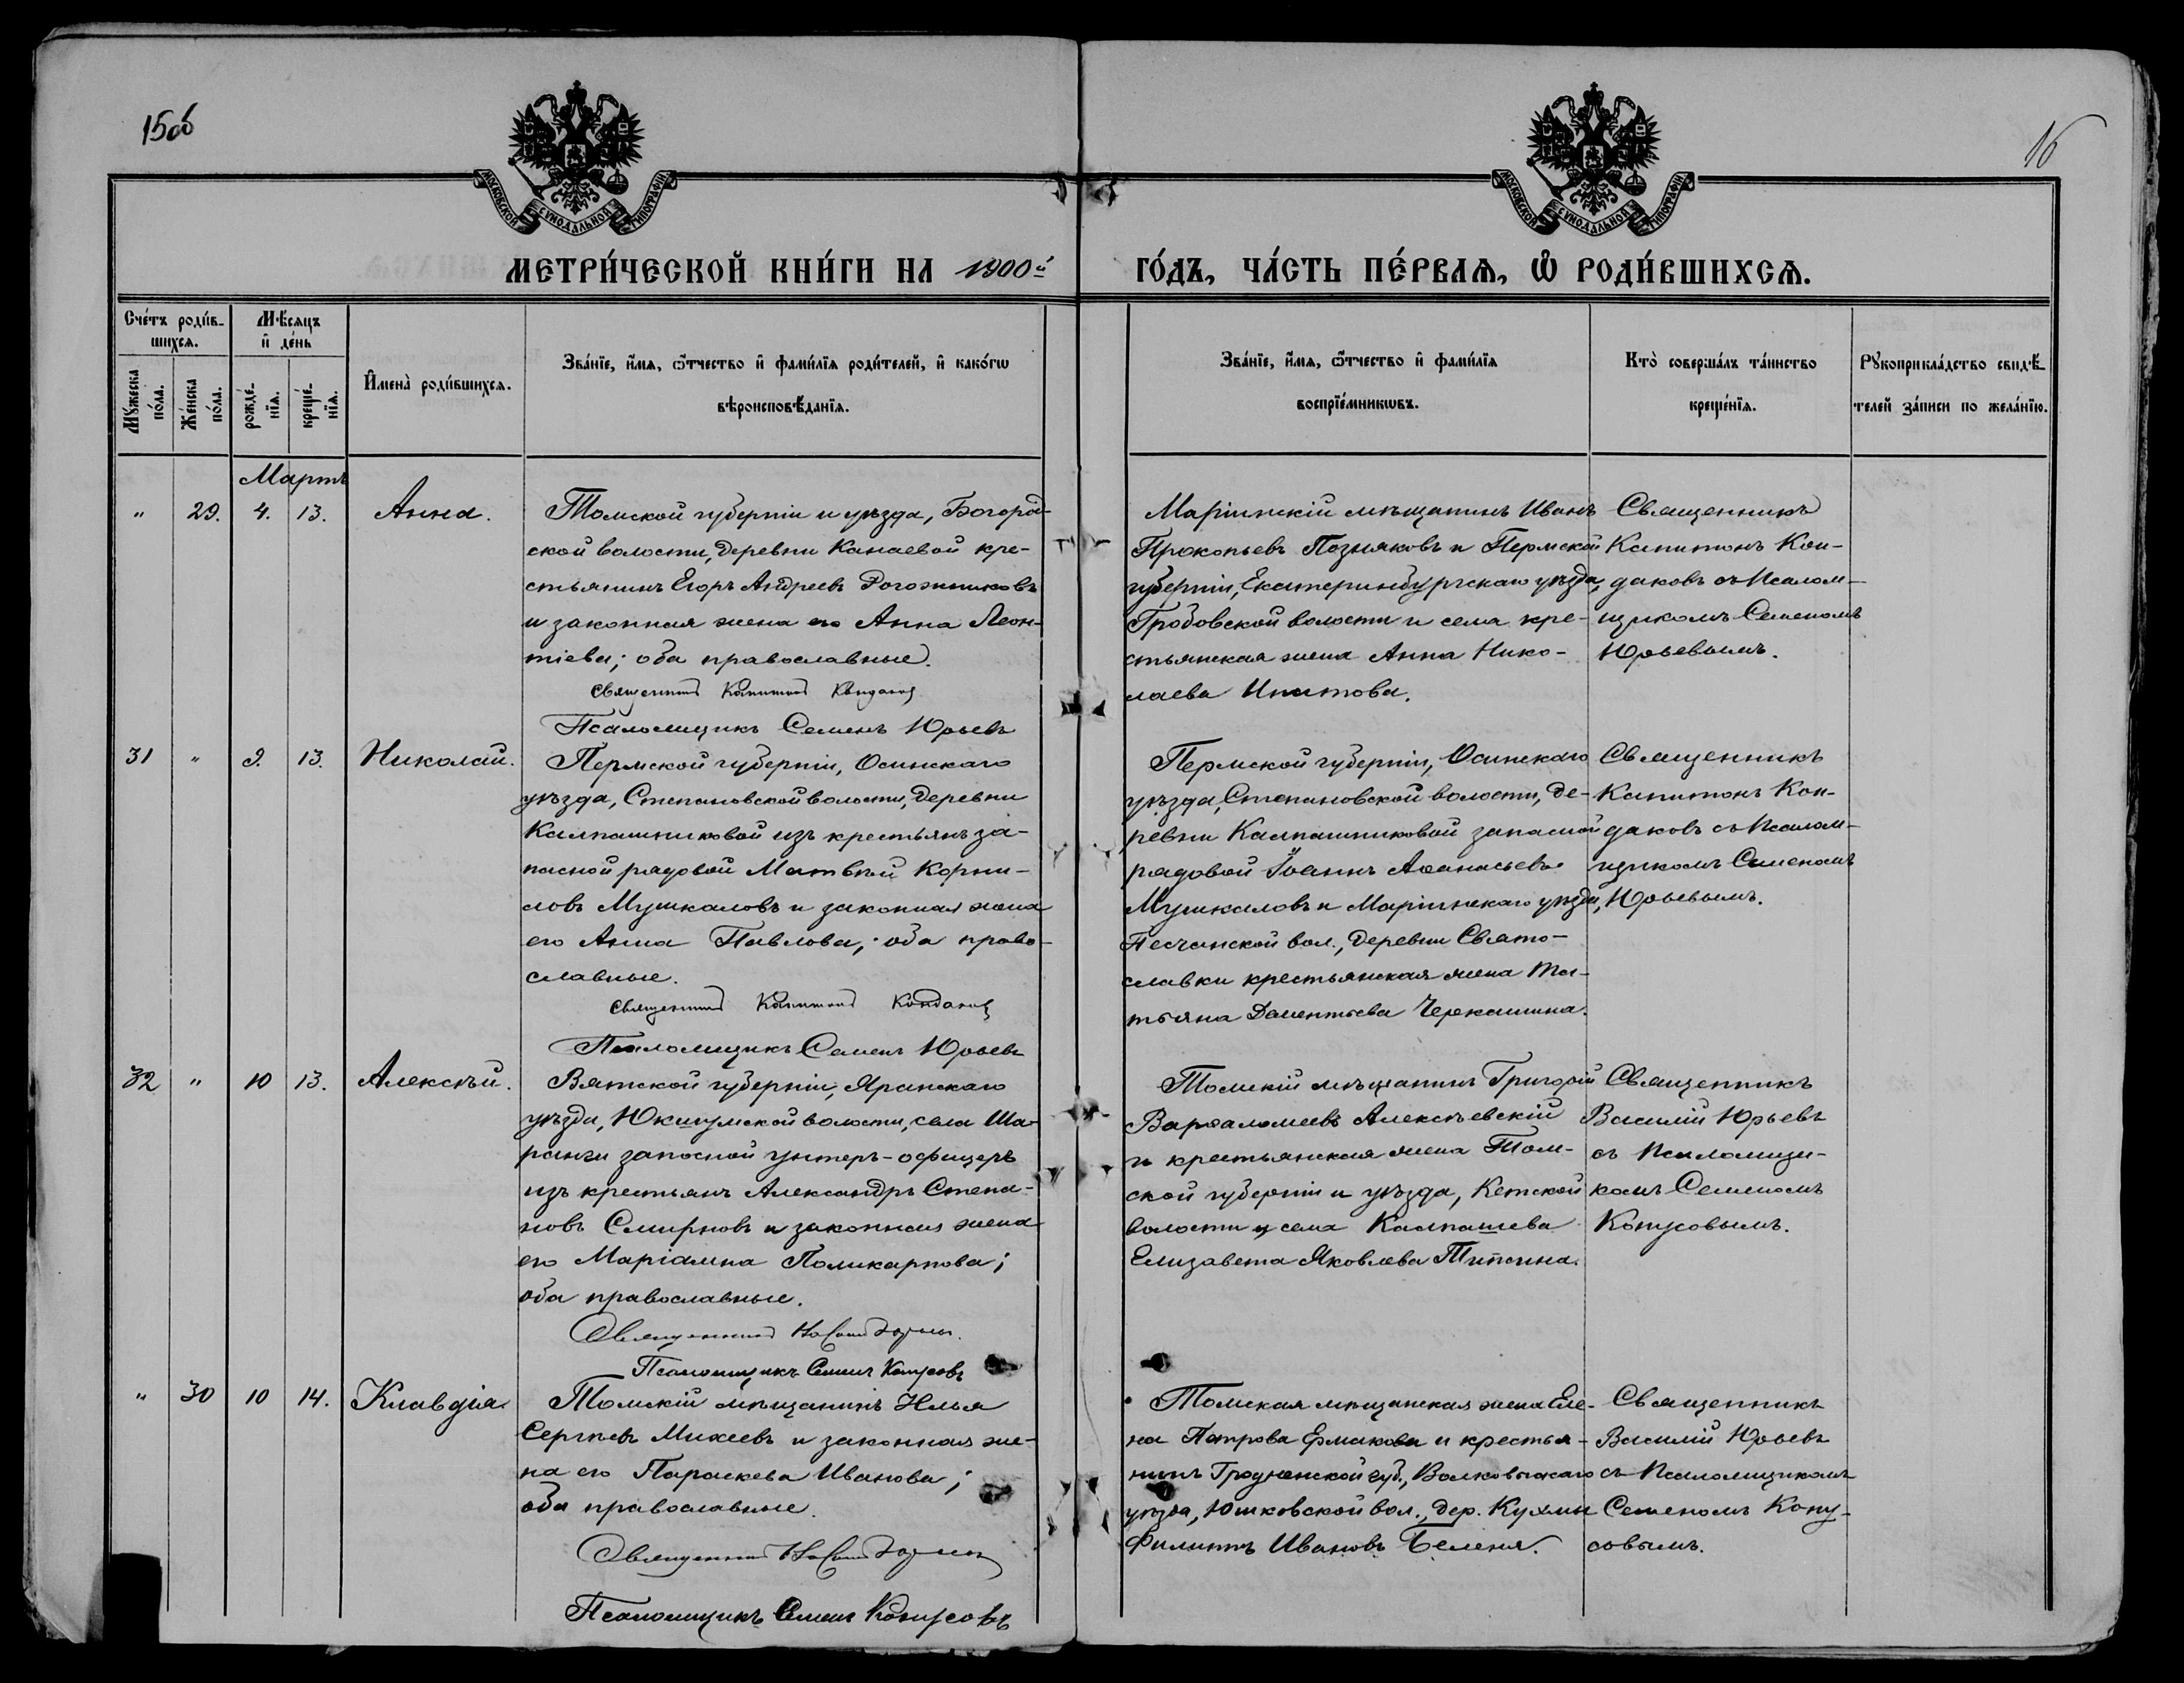 15об
16
МОСКОВСКОЙ СѴНОДАЛЬНОЙ ТИПОГРАФІИ
МОСКОВСКОЙ СѴНОДАЛЬНОЙ ТИПОГРАФІИ
МЕТРИ́ЧЕСКОЙ КНИ́ГИ НА 1900й
ГО́ДЪ, ЧА́СТЬ ПЕ́РВАѦ, Ѡ҆ РОДИ́ВШИХСѦ.
Сче́тъ роди́в-
шихсѧ.
Мꙋжеска по́ла.
Же́нска по́ла.
Мѣ́сѧцъ
и҆ де́нь
рожде́-
нїѧ.
креще́-
нїѧ.
И҆мена̀ роди́вшихсѧ.
Зва́нїе, и҆́мѧ, ѻ҆́тчество и҆ фами́лїѧ роди́телей, и҆ како́гѡ
вѣроисповѣ́данїѧ.
Зва́нїе, и҆́мѧ, ѻ҆́тчество и҆ фами́лїѧ
воспрїе́мникѡвъ.
Кто̀ соверша́лъ та́инство
креще́нїѧ.
Рꙋкоприкла́дство свидѣ́-
телей за́писи по жела́нїю.
Мартъ
" 29. 4. 13. Анна.
Томской губерніи и уѣзда, Богород-
ской волости, деревни Канаевой кре-
стьянинъ Егоръ Андреевъ Рогожниковъ
и законная жена его Анна Леон-
тіева; оба православные.
Священникъ Капитонъ Кондаковъ
Псаломщикъ Семенъ Юрьевъ
Маріинскій мѣщанинъ Иванъ
Прокопьевъ Позняковъ и Пермской
губерніи, Екатеринбургскаго уѣзда,
Гробовской волости и села кре-
стьянская жена Анна Нико-
лаева Ипатова.
Священникъ
Капитонъ Кон-
даковъ съ Псалом-
щикомъ Семеномъ
Юрьевымъ.
31 " 9. 13. Николай.
Пермской губерніи, Осинскаго
уѣзда, Степановской волости, деревни
Калпашниковой изъ крестьянъ за-
пасной рядовой Матвѣй Корни-
ловъ Мушкаловъ и законная жена
его Анна Павлова; оба право-
славные.
Священникъ Капитонъ Кондаковъ
Псаломщикъ Семенъ Юрьевъ
Пермской губерніи, Осинскаго
уѣзда, Степановской волости, де-
ревни Калпашниковой запасной
рядовой Іоаннъ Аѳанасьевъ
Мушкаловъ и Маріинскаго уѣзда,
Песчанской вол., деревни Свято-
славки крестьянская жена Та-
тьяна Дементьева Черкашина.
Священникъ
Капитонъ Кон-
даковъ съ Псалом-
щикомъ Семеномъ
Юрьевымъ.
32 " 10 13. Алексѣй.
Вятской губерніи, Яранскаго
уѣзда, Юкшумской волости, села Ша-
ранги запасной унтеръ-офицеръ
изъ крестьянъ Александръ Степа-
новъ Смирновъ и законная жена
его Маріамна Поликарпова;
оба православные.
Священникъ
Псаломщикъ Семенъ Копусовъ
Томскій мѣщанинъ Григорій
Варѳаломеевъ Алексѣевскій
и крестьянская жена Том-
ской губерніи и уѣзда, Кетской
волости и села Калпашева
Елизавета Яковлева Типсина.
Священникъ
Василій Юрьевъ
съ Псаломщи-
комъ Семеномъ
Копусовымъ.
" 30 10 14. Клавдія.
Томскій мѣщанинъ Илья
Сергѣевъ Михеевъ и законная же-
на его Параскева Иванова;
оба православные.
Священникъ
Псаломщикъ Семенъ Копусовъ
Томская мѣщанская жена Еле-
на Петрова Ермакова и крестья-
нинъ Гродненской губ., Волковыскаго
уѣзда, Юшковской вол., дер. Кухмы
Филиппъ Ивановъ Беленя.
Священникъ
Василій Юрьевъ
съ Псаломщикомъ
Семеномъ Копу-
совымъ.